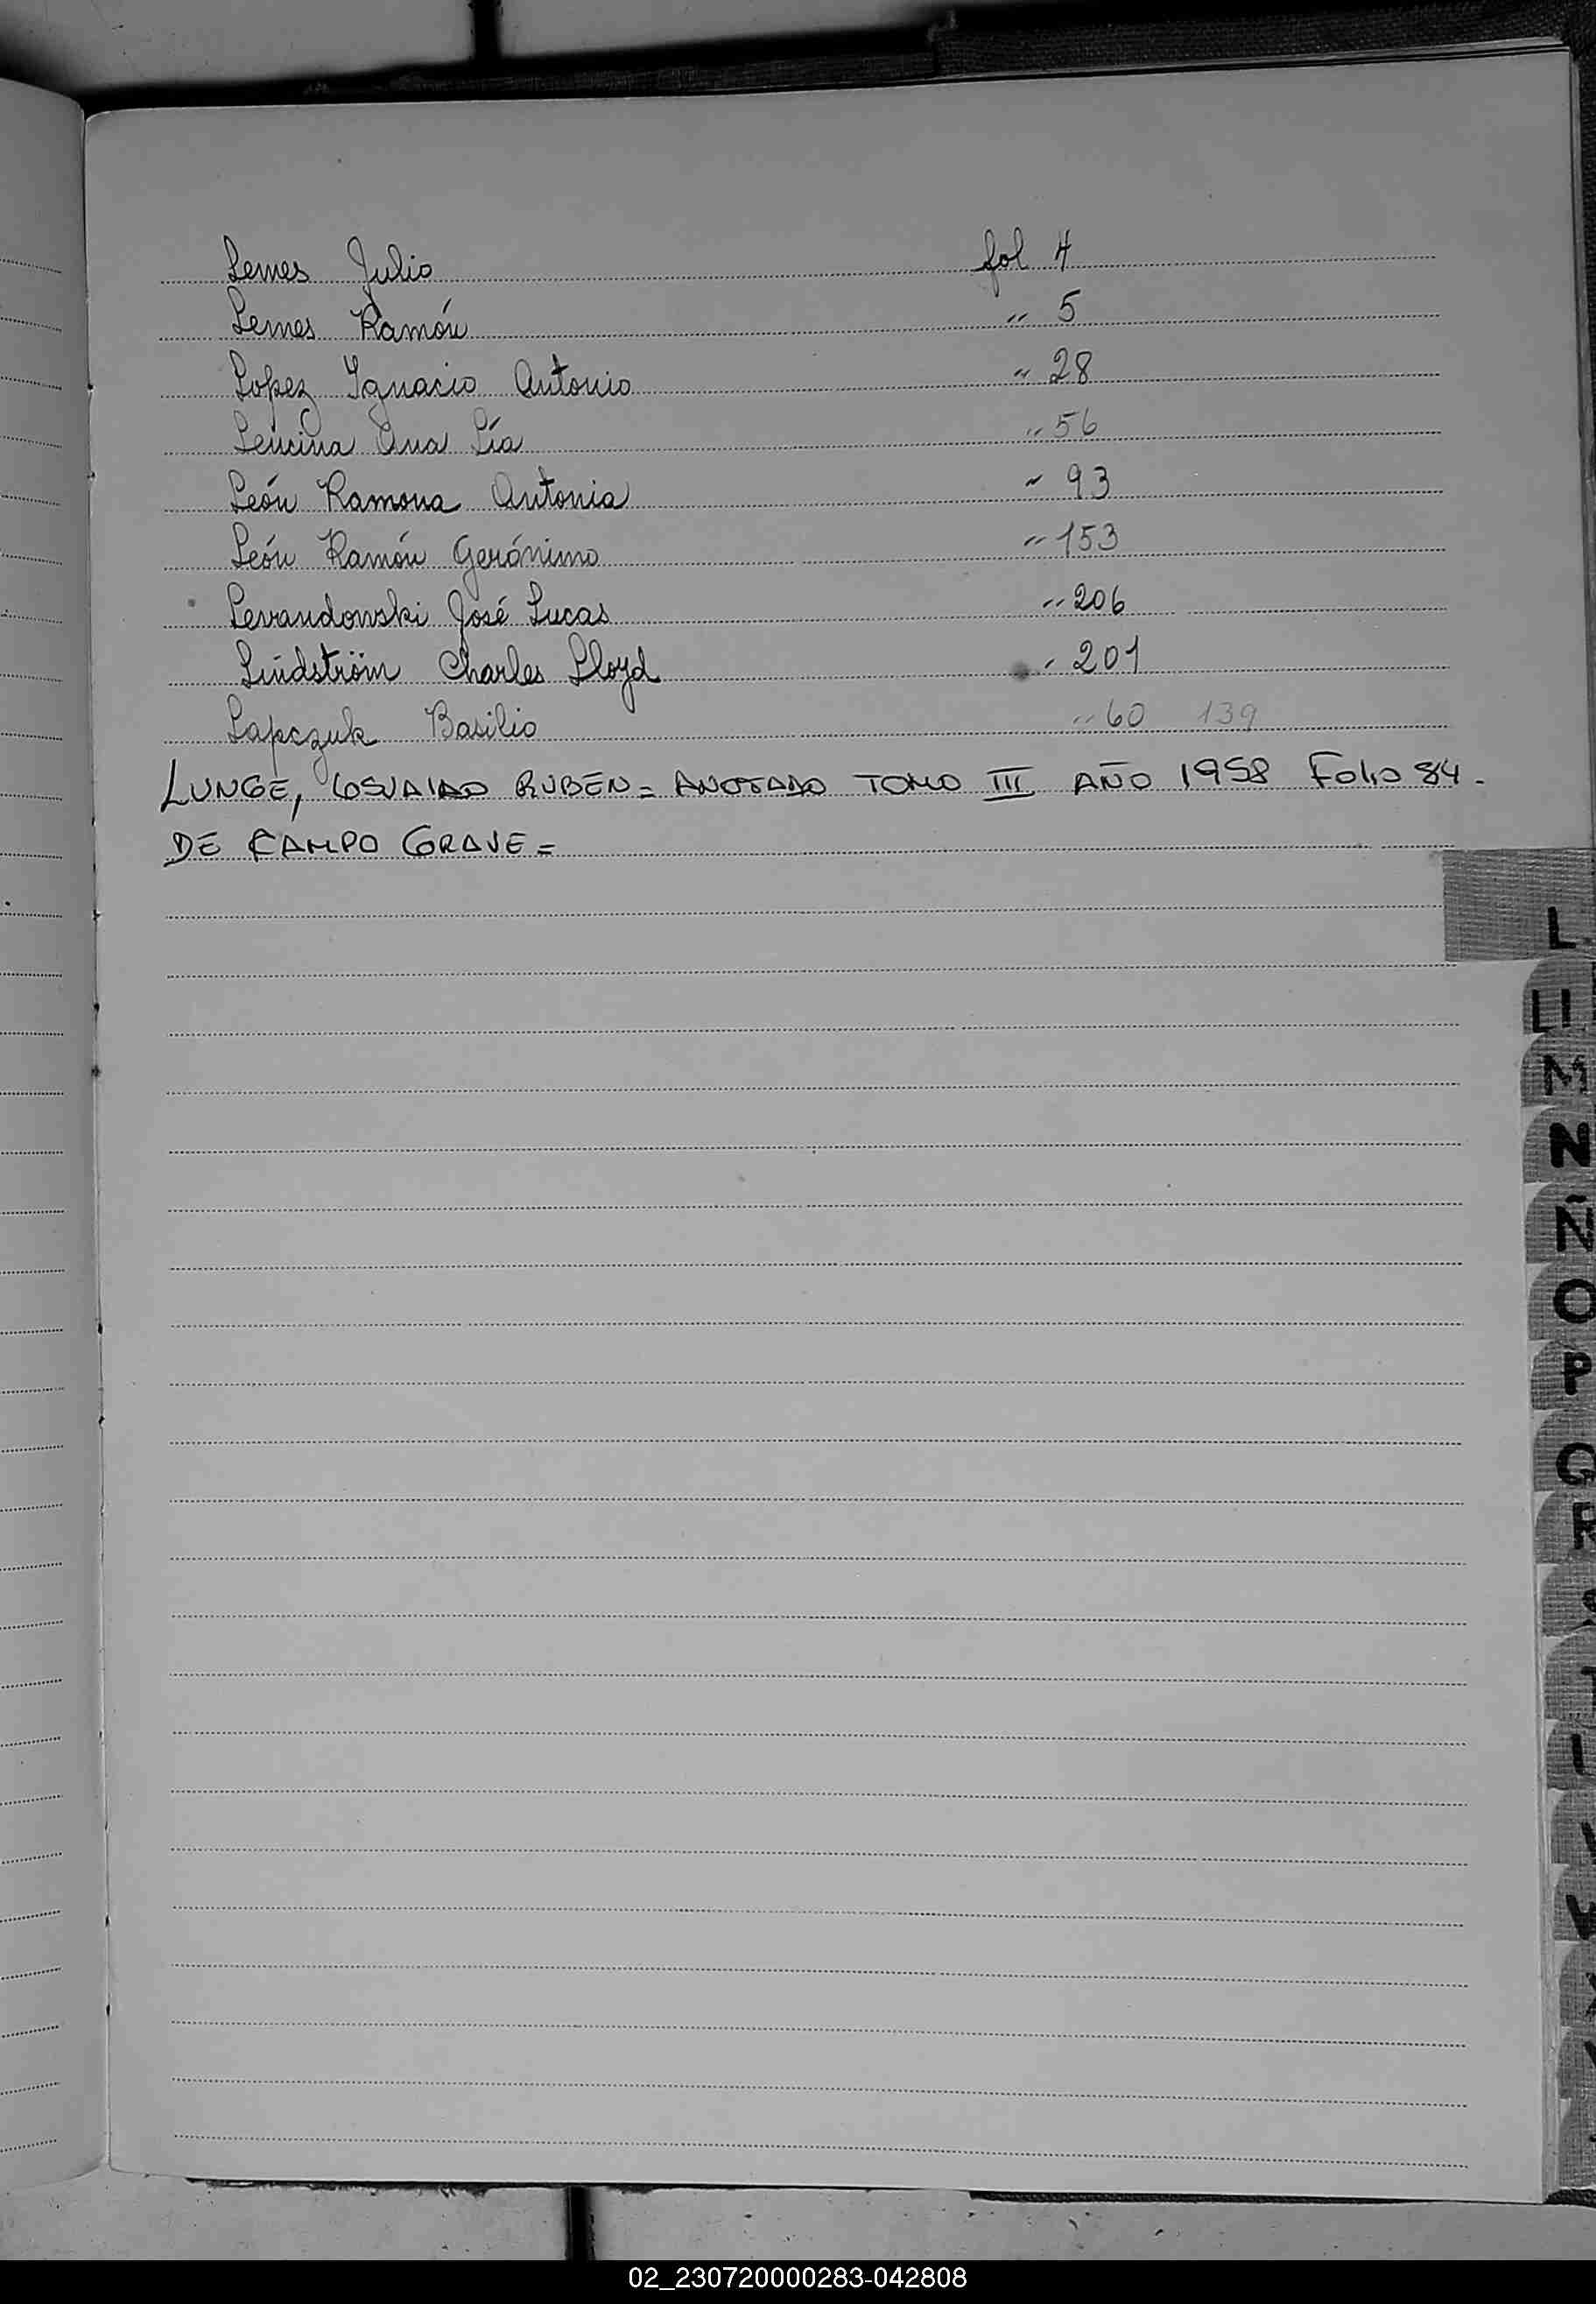 Lemes Julio fol 4
Lemes Ramón " 5
Lopez Ignacio Antonio " 28
Lencina Ana Lía " 56
León Ramona Antonia " 93
León Ramón Gerónimo " 153
Levandowski José Lucas " 206
Lindström Charles Lloyd " 201
Lapczuk Basilio " 60 139
LUNGE, OSVALDO RUBEN = ANOTADO TOMO III AÑO 1958 FOLIO 84 -
DE CAMPO GRAVE =
L
LL
M
N
Ñ
O
P
Q
R
02_230720000283-042808